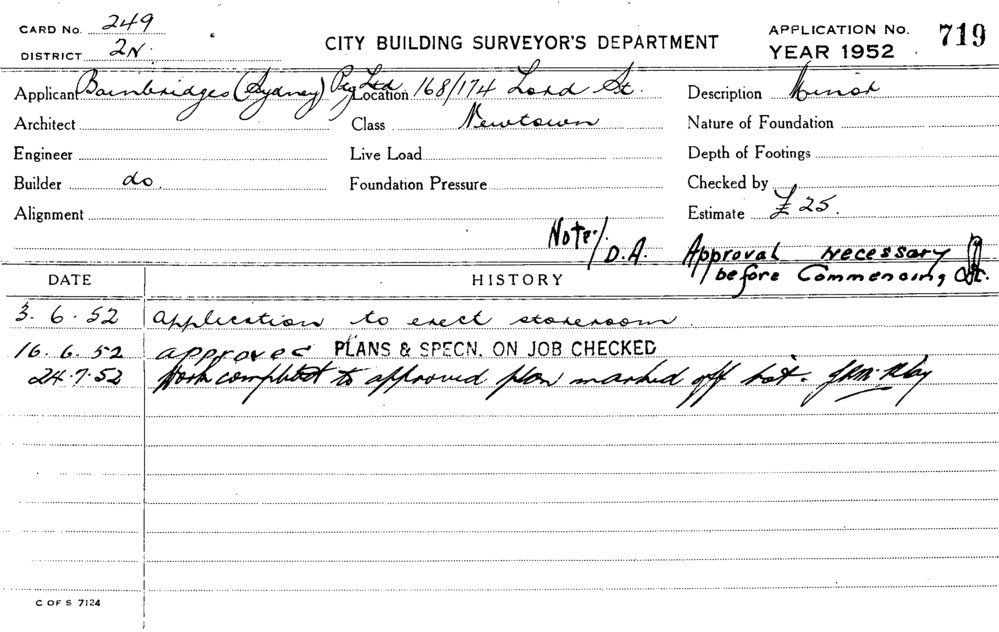 CARD No. 249
DISTRICT 2N.
CITY BUILDING SURVEYOR'S DEPARTMENT
APPLICATION No. 719
YEAR 1952
Applicant Bainbridges (Sydney) Pty Ltd Location 168/174 Lord St. Description Minor
Architect Class Newtown Nature of Foundation
Engineer Live Load Depth of Footings
Builder do. Foundation Pressure Checked by
Alignment Estimate £25.
Note:/ D.A. Approval necessary
before Commencing
DATE HISTORY
3. 6. 52 application to erect storeroom.
16. 6. 52 approved PLANS & SPECN. ON JOB CHECKED
24.7.52 Work completed to approved plan marked off list.
C OF S 7124